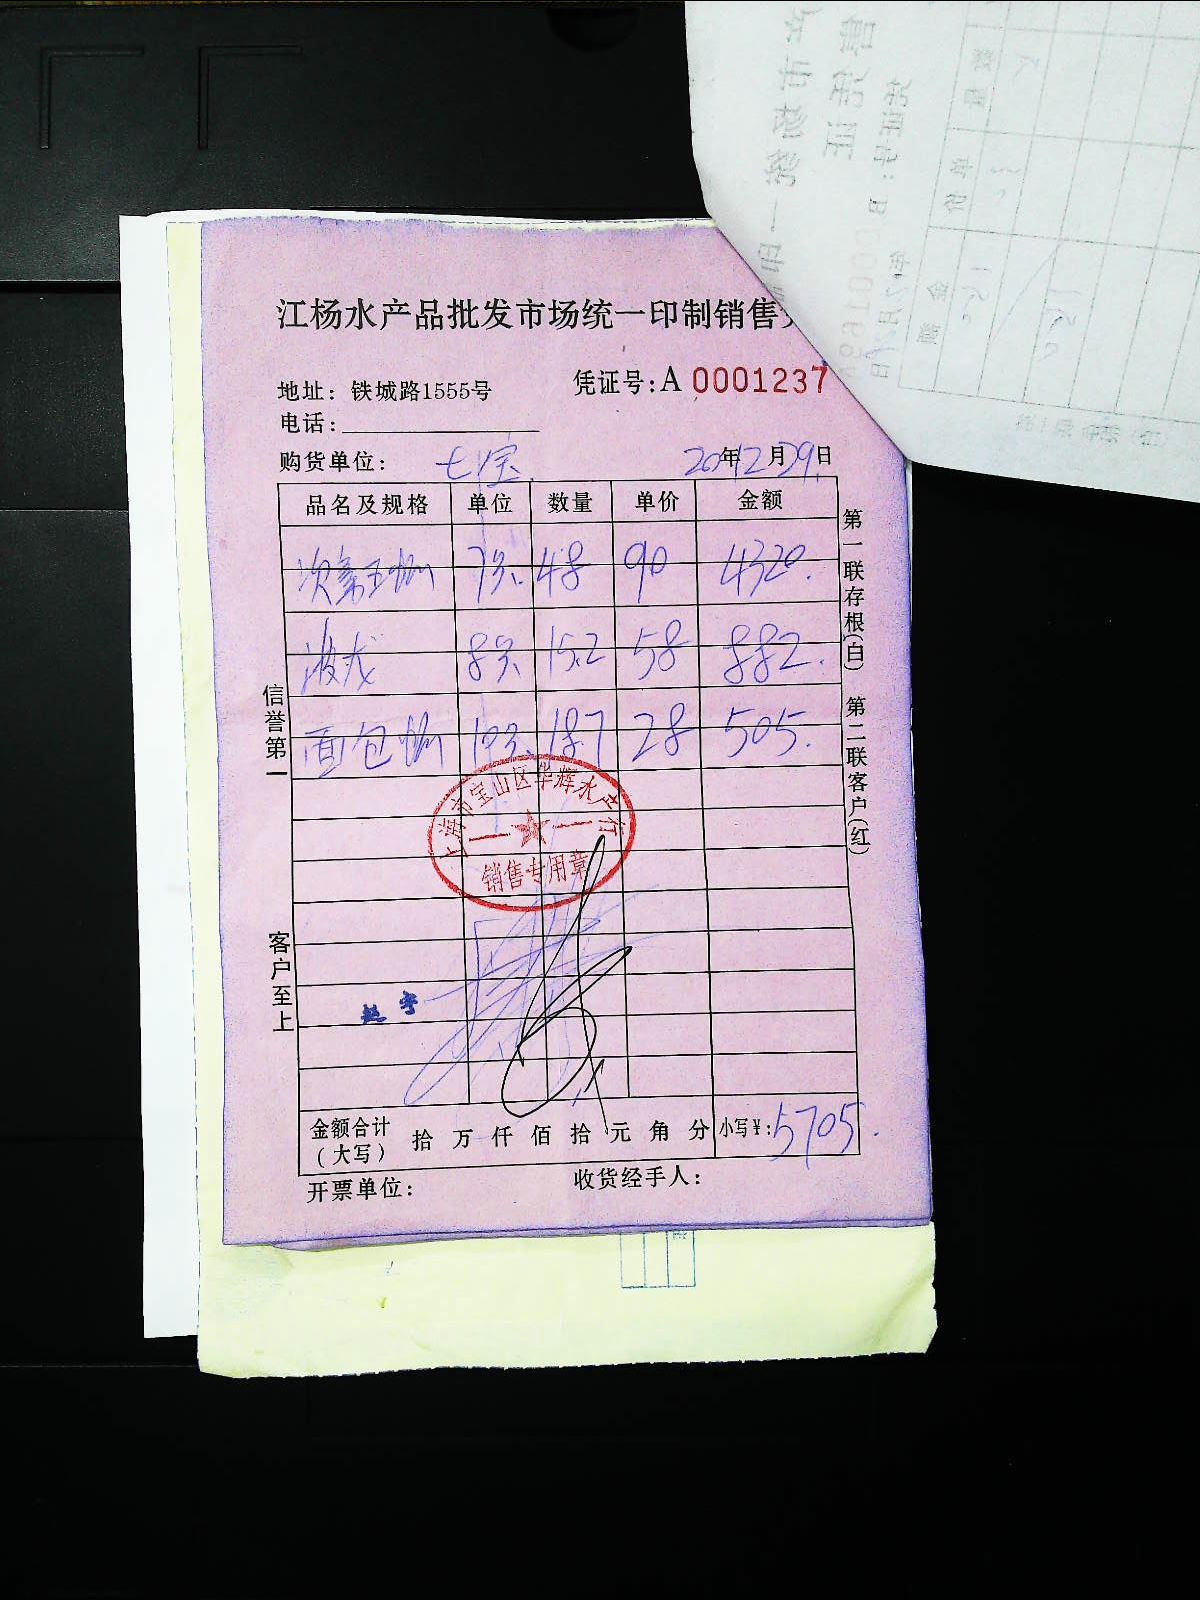 江杨水产品批发市场统一印制销售
地址：铁城路1555号
凭证号：A 0001237
电话：
购货单位：七宝
20 年12月29日
品名及规格 单位 数量 单价 金额
48 90 4320.
波龙 8只 15.2 58 882.
面包蟹 10只 18.7 28 505.
信誉第一
客户至上
第一联存根(白) 第二联客户(红)
上海市宝山区华辉水产行
销售专用章
赵宇
金额合计（大写） 拾 万 仟 佰 拾 元 角 分 小写¥：5705.
开票单位：
收货经手人：